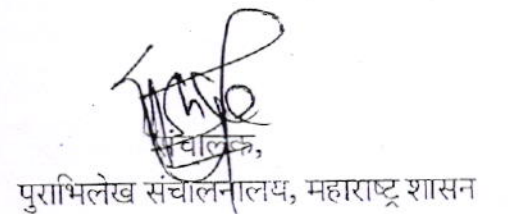 संचालक,
पुराभिलेख संचालनालय, महाराष्ट्र शासन